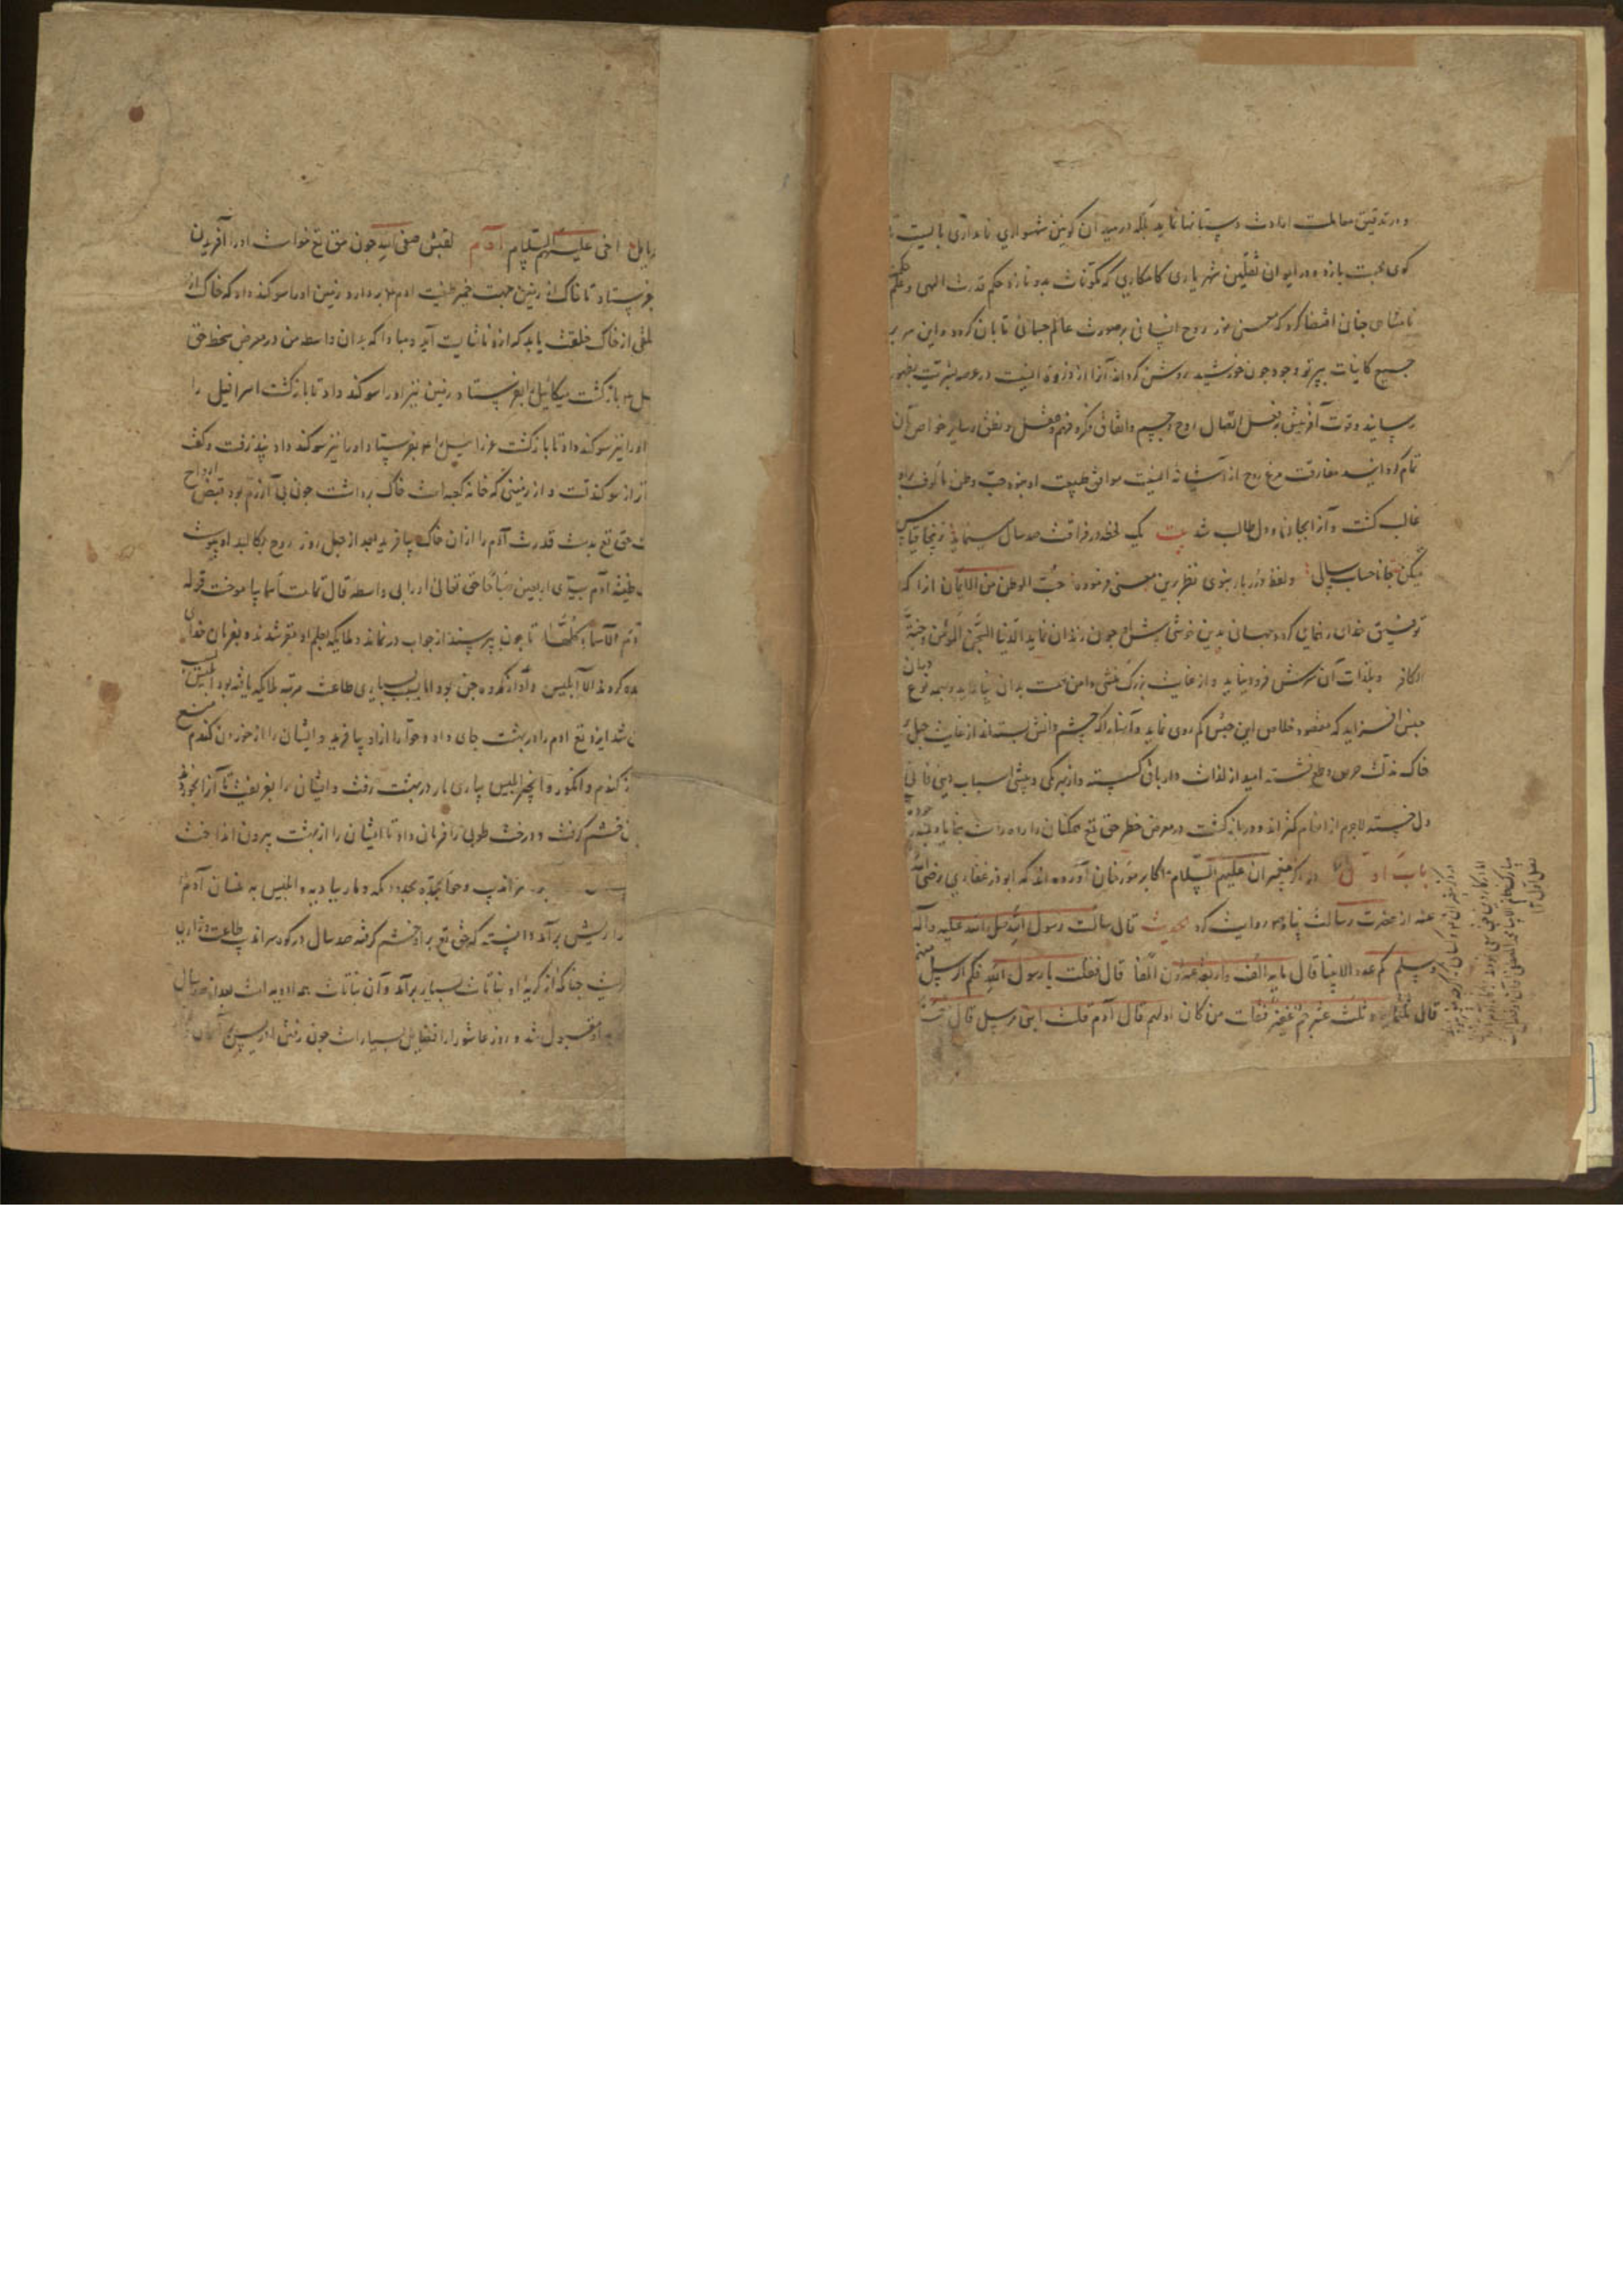 و در تدقیق معاملت ارادت دستانها نماید بلکه در میدان کونین شهسواری نامداری بایست تا
کوی محبت بازد و در ایوان ثقلین شهریاری کامکاری که مکونات بدو نازد حکم قدرت الهی و حکم
نامتناهی جنان اقتضا کرد که معنی نور روح انسانی بر صورت عالم جسمانی تابان کردد و این سر بر
جمیع کاینات بپرتو وجود جون خورشید روشن کرداند آنرا از ذروه انسیت در عرصه بشریت بظهور
رسانید و قوت آفرینش بفعل اتصال روح و جسم و اتفاق فکر و فهم و عقل و نطق و سایر خواص آن
تمام کردانید مفارقت مرغ روح از آشیانه انسیت موافق طبیعت او نبود حب وطن مالوف برو
غالب کشت و آنرا بجان و دل طالب شد بیت یک لحظه در فراقت صد سال می نماید زینجا قیاس
میکن جانا حساب سالی و لفظ درربار نبوی نظر برین معنی فرموده حب الوطن من الایمان انرا که
توفیق خدای رهنمای کردد جهان بدین خوشی پیشش جون زندان نماید الدنیا سجن المومن و جنة
الکافر و بلذات آن سرش فرو نیاید و از غایت بزرک منشی دامن همت بدان نیالاید و بهمه نوع
جنس افزاید که مقصود خلاص این حبس کم روی نماید و آنها را که چشم دانش بسته اند از غایت جهل بر
خاک مذلت حرص و طمع نشسته امید از لذات دار باقی کسسته و از بهر کمی و بیشی اسباب دنیی فانی
دل خسته لاجرم از انعام کمتر اند و در بازکشت در معرض خطر حق تع همکنان را راه راست بنمایاد بمنه و جوده
باب اول در ذکر پیغمبران علیهم السلام اکابر مورخان آورده اند که ابوذر غفاری رضی الله
عنه از حضرت رسالت پناه روایت کرد بحدیث قال سالت رسول الله صلی الله علیه و آله
و سلم کم عدد الانبیا قال مایة الف و اربعة و عشرون الفا قال فقلت یا رسول الله فکم ارسل منهم
قال ثلثمایه و ثلث عشر جم غفیر فقلت من کان اولهم قال آدم قلت انبی مرسل قال نعم
فصل اول
اخی علیهم السلام آدم لقبش صفی الله جون حق تع خواست او را آفریدن
بفرستاد تا خاک از زمین جهت خمیر طینت ادم بردارد زمین او را سوکند داد که خاک از
خلقی از خاک خلقت یابد که ازو ناشایست آید و مبادا که بدان واسطه من در معرض سخط حق
بازکشت میکائیل را بفرستاد زمین نیز او را سوکند داد تا بازکشت اسرافیل را
او را نیز سوکند داد تا بازکشت عزراییل را بفرستاد او را نیز سوکند داد نپذرفت و کفت
از سوکند تست و از زمینی که خانه کعبه است خاک برداشت جون بی آزرم بود قبض ارواح
حق تع بدست قدرت آدم را ازان خاک بیافرید بعد از جهل روز روح بکالبد او پیوست
طینة آدم بیدی اربعین صباحا حق تعالی او را بی واسطه قال تمامت اسما بیاموخت قوله
آدم الاسماء کلها تا جون بپرسیدند از جواب درنماند و ملایکه بعلم او مقر شدند و بفرمان خدای
سجده کردند الا ابلیس و او از کروه جن بود اما بسبب بسیاری طاعت مرتبه ملایکه یافته بود ابلیس
شد ایزد تع ادم را در بهشت جای داد و حوا را ازو بیافرید و ایشان را از خوردن کندم منع
کندم و انکور و انجیر ابلیس بیاری مار در بهشت رفت و ایشان را بفریفت تا آنرا بخوردند
خشم کرفت و درخت طوبی را فرمان داد تا ایشان را از بهشت بیرون انداخت
سراندیب و حوا بجده بحدود مکه و مار ببادیه و ابلیس به آدم
را ریش برآمد دانسته که حق تع برو خشم کرفته صد سال در کوه سراندیب بطاعت و زاری
جنانکه از کریه او نباتات بسیار برآمد و آن نباتات همه ادویه است بعد از صد سال
قبول شد و روز عاشورا را فضایل بسیار است جون رفتن ادریس